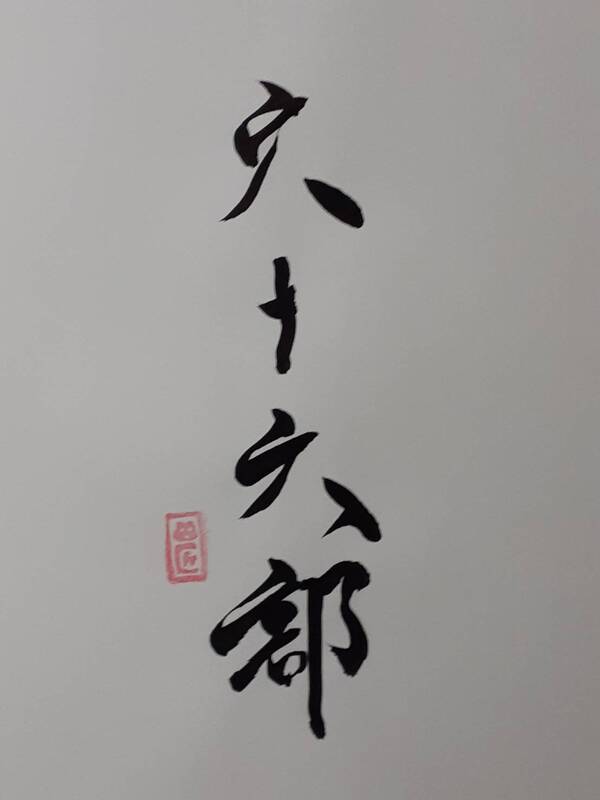 六十六部